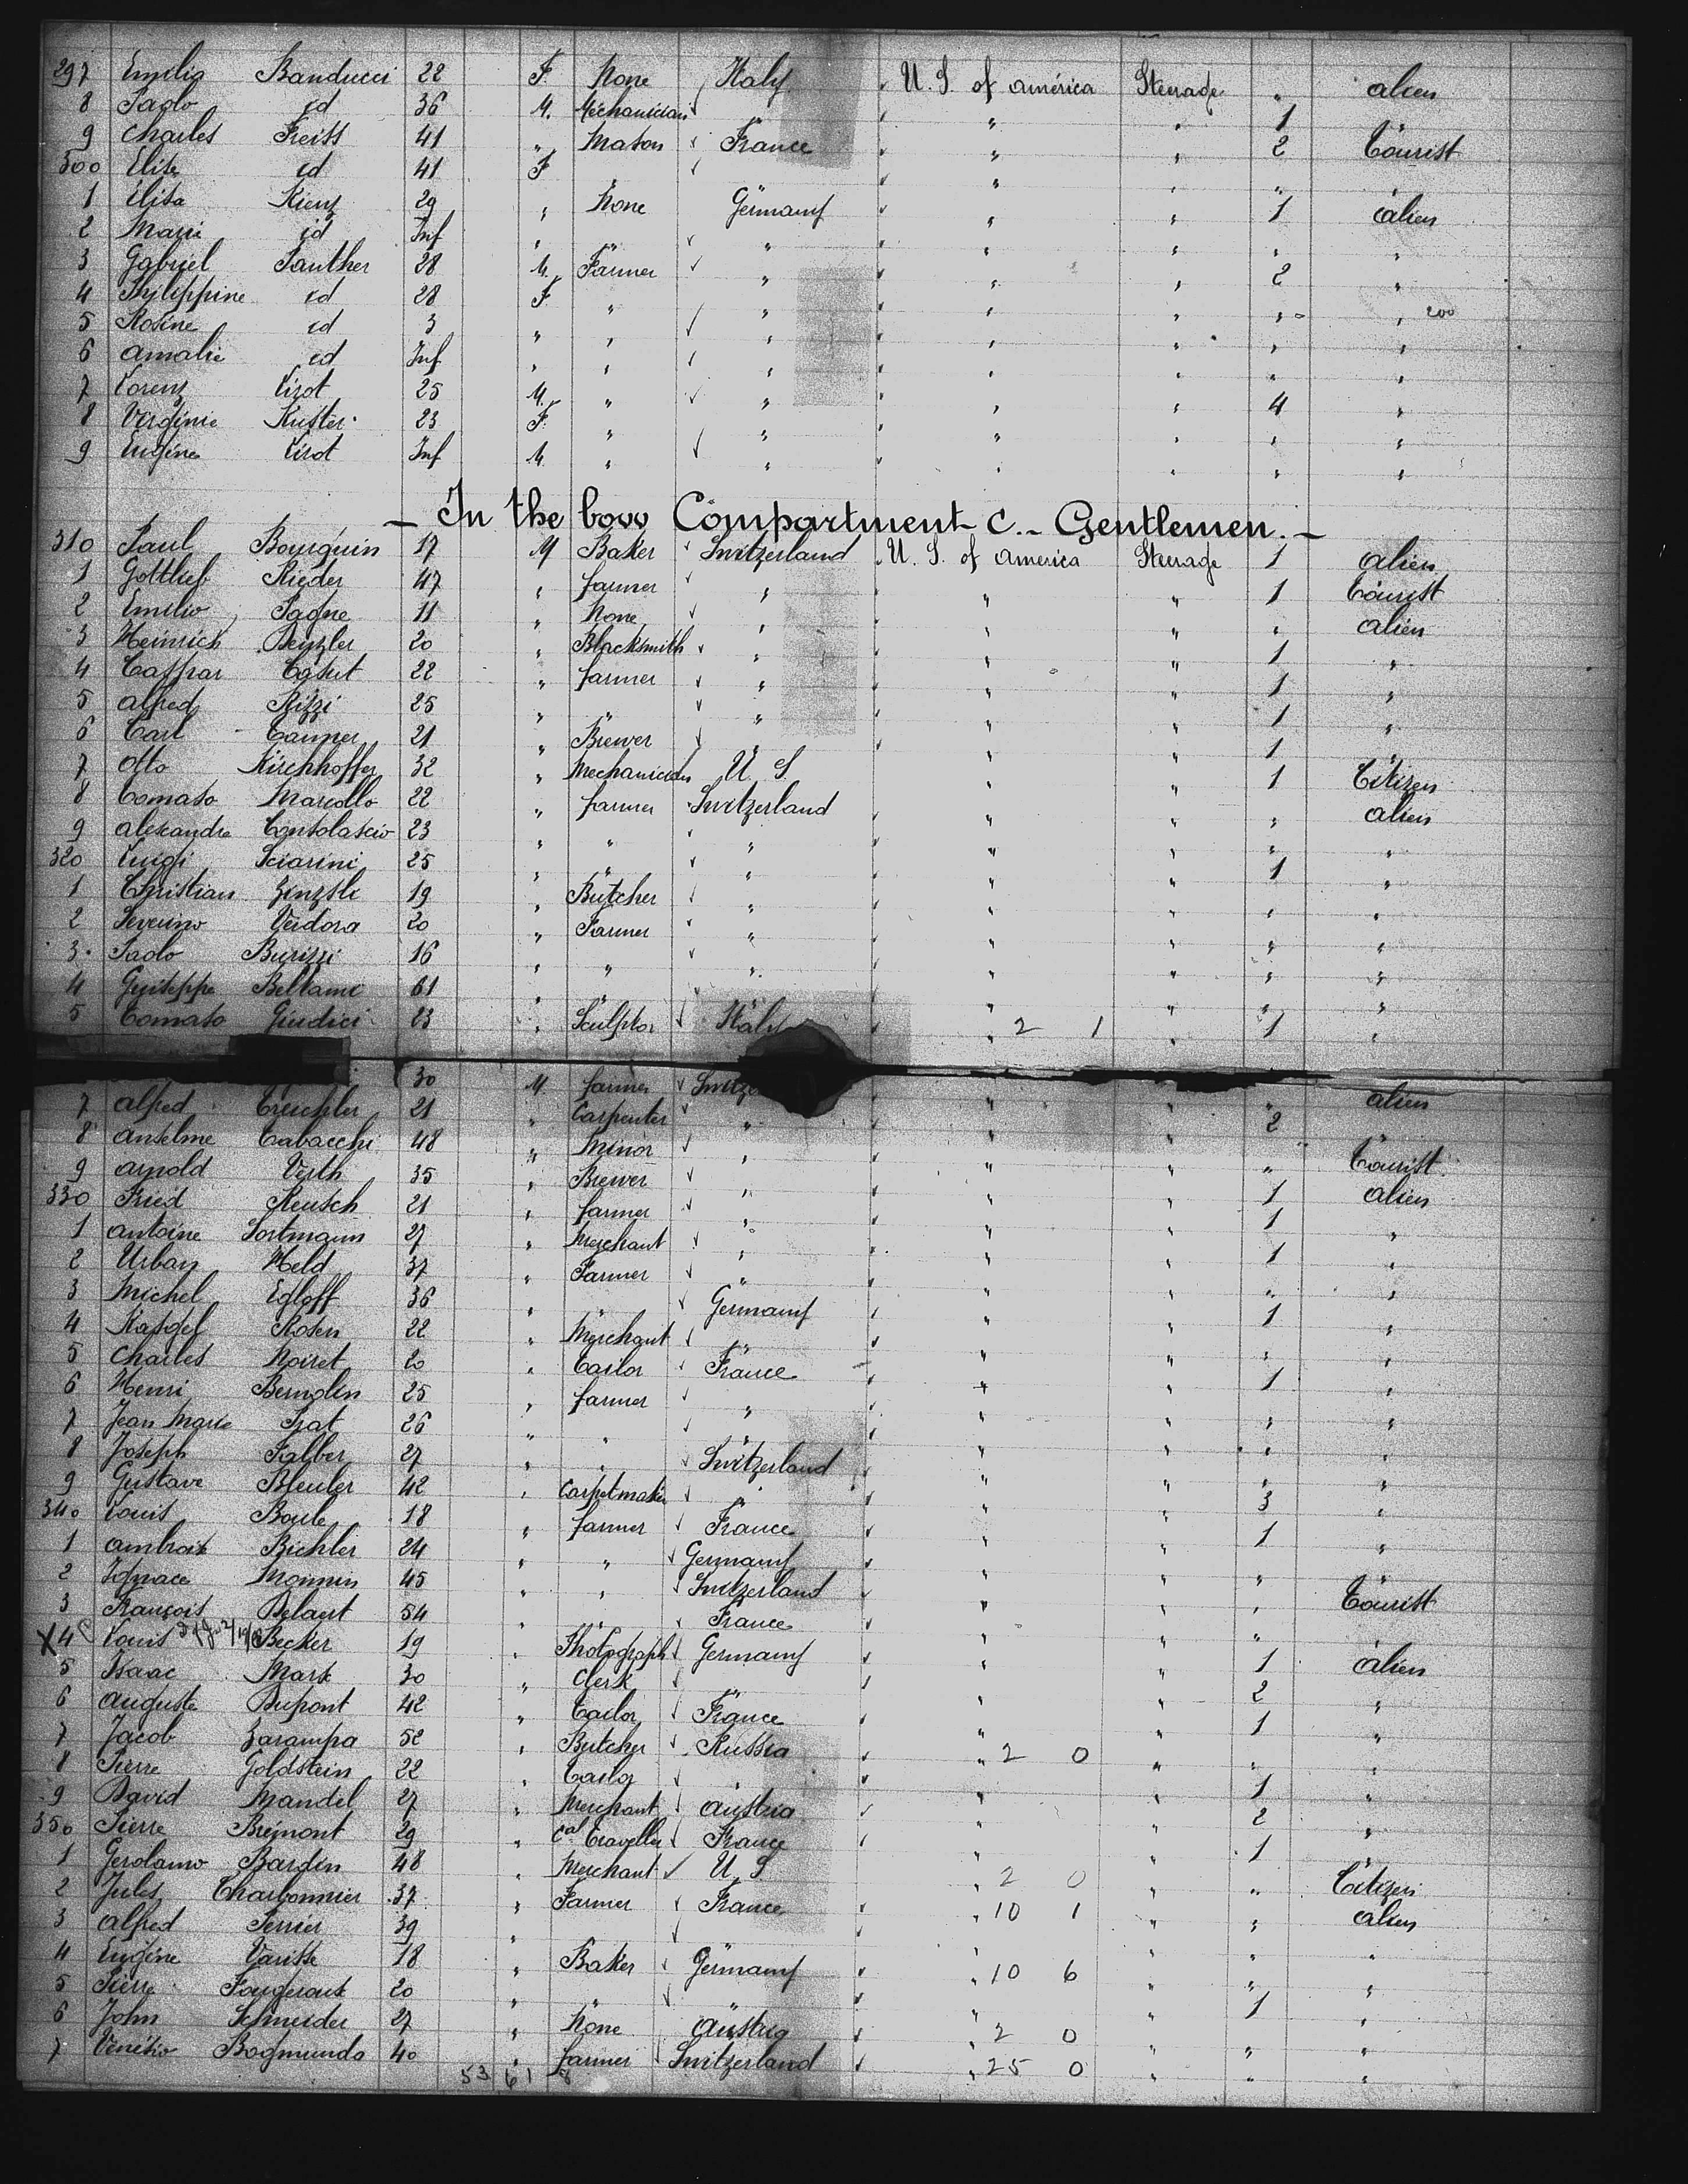 297 Emilia Banducci 22 F None Italy U. S. of america Steerage " alien
8 Paolo id 36 M. Mechanician " " 1 "
9 Charles Freiss 41 " Mason France " " 2 Tourist
300 Elise id 41 F " " " " "
1 Elisa Kienz 29 " None Germany " " 1 alien
2 Marie id Inf " " " " " " "
3 Gabriel Panther 28 M. Farmer " " " 2 "
4 Philippine id 28 F. " " " " " " 200
5 Rosine id 3 " " " " " " "
6 Amalie id Inf " " " " " " "
7 Lorenz Lizot 25 M. " " " " 4 "
8 Virginie Kuster 23 F. " " " " " "
9 Eugène Lizot Inf M. " " " " " "
— In the bow Compartment C. — Gentlemen. —
310 Paul Bourquin 17 M Baker Switzerland U. S. of america Steerage 1 alien
1 Gottlieb Rieder 47 " farmer " " " 1 Tourist
2 Emilio Pagne 11 " None " " " " alien
3 Heinrich 20 " Blacksmith " " " 1 "
4 Caspar 22 " farmer " " " 1 "
5 alfred Rizzi 25 " " " " " 1 "
6 Carl Tanner 21 " Brewer " " " 1 "
7 Otto Kirchhoffer 32 " Mechanician U. S. " " 1 Citizen
8 Tomaso Marcollo 22 " farmer Switzerland " " " alien
9 alexandre Consolascio 23 " " " " " " "
320 Luigi Sciarini 25 " " " " " 1 "
1 Christian Zinzsli 19 " Butcher " " " " "
2 Severino Verdora 20 " Farmer " " " " "
3 Paolo Burizzi 16 " " " " " " "
4 Guiseppe Bellami 61 " " " " " " "
5 Tomaso Giudici 23 " Sculptor Italy " 2 1 " 1 "
30 M farmer
7 alfred Treichler 21 " Carpenter " " " 2 alien
8 anselme Tabacchi 48 " Minor " " " " Tourist
9 arnold Verth 35 " Brewer " " " 1 alien
330 Fried Reusch 21 " farmer " " " 1 "
1 antoine Sortmann 27 " Merchant " " " 1 "
2 Urban Held 37 " Farmer " " " " "
3 Michel Egloff 36 " " Germany " " 1 "
4 Rosen 22 " Merchant " " " " "
5 Charles Noiret 20 " Tailor France " " 1 "
6 Henri Bernolin 25 " farmer " " " " "
7 Jean Marie Prat 26 " " " " " " "
8 Joseph Falber 27 " " Switzerland " " " "
9 Gustave Bleuler 42 " Carpetmaker " " " 3 "
340 Louis Boule 18 " farmer France " " 1 "
1 ambroise Bichler 24 " " Germany " " " "
2 Ignace Monnin 45 " " Switzerland " " " Tourist
3 François Belaert 54 " " France " " " "
X 4 Louis Becker 19 " Photograph Germany " " 1 alien
5 Isaac Mark 30 " Clerk " " " 2 "
6 auguste Dupont 42 " Tailor France " " 1 "
7 Jacob Zarampa 52 " Butcher Russia " 2 0 " " "
8 Pierre Goldstein 22 " Tailor " " " 1 "
9 David Mandel 27 " Merchant Austria " " 2 "
350 Pierre Bremont 29 " Cal Traveller France " " 1 "
1 Gerolamo Bardin 48 " Merchant U. S " 2 0 " " Citizen
2 Jules Charbonnier 37 " Farmer France " 10 1 " " alien
3 alfred Perrier 39 " " " " " " "
4 Eugène Varisse 18 " Baker Germany " 10 6 " " "
5 Pierre Fougeroux 20 " " " " " 1 "
6 John Schneider 27 " None Austria " 2 0 " " "
7 Venisio Bogmundo 40 " farmer Switzerland " 25 0 " " "
53 61 8